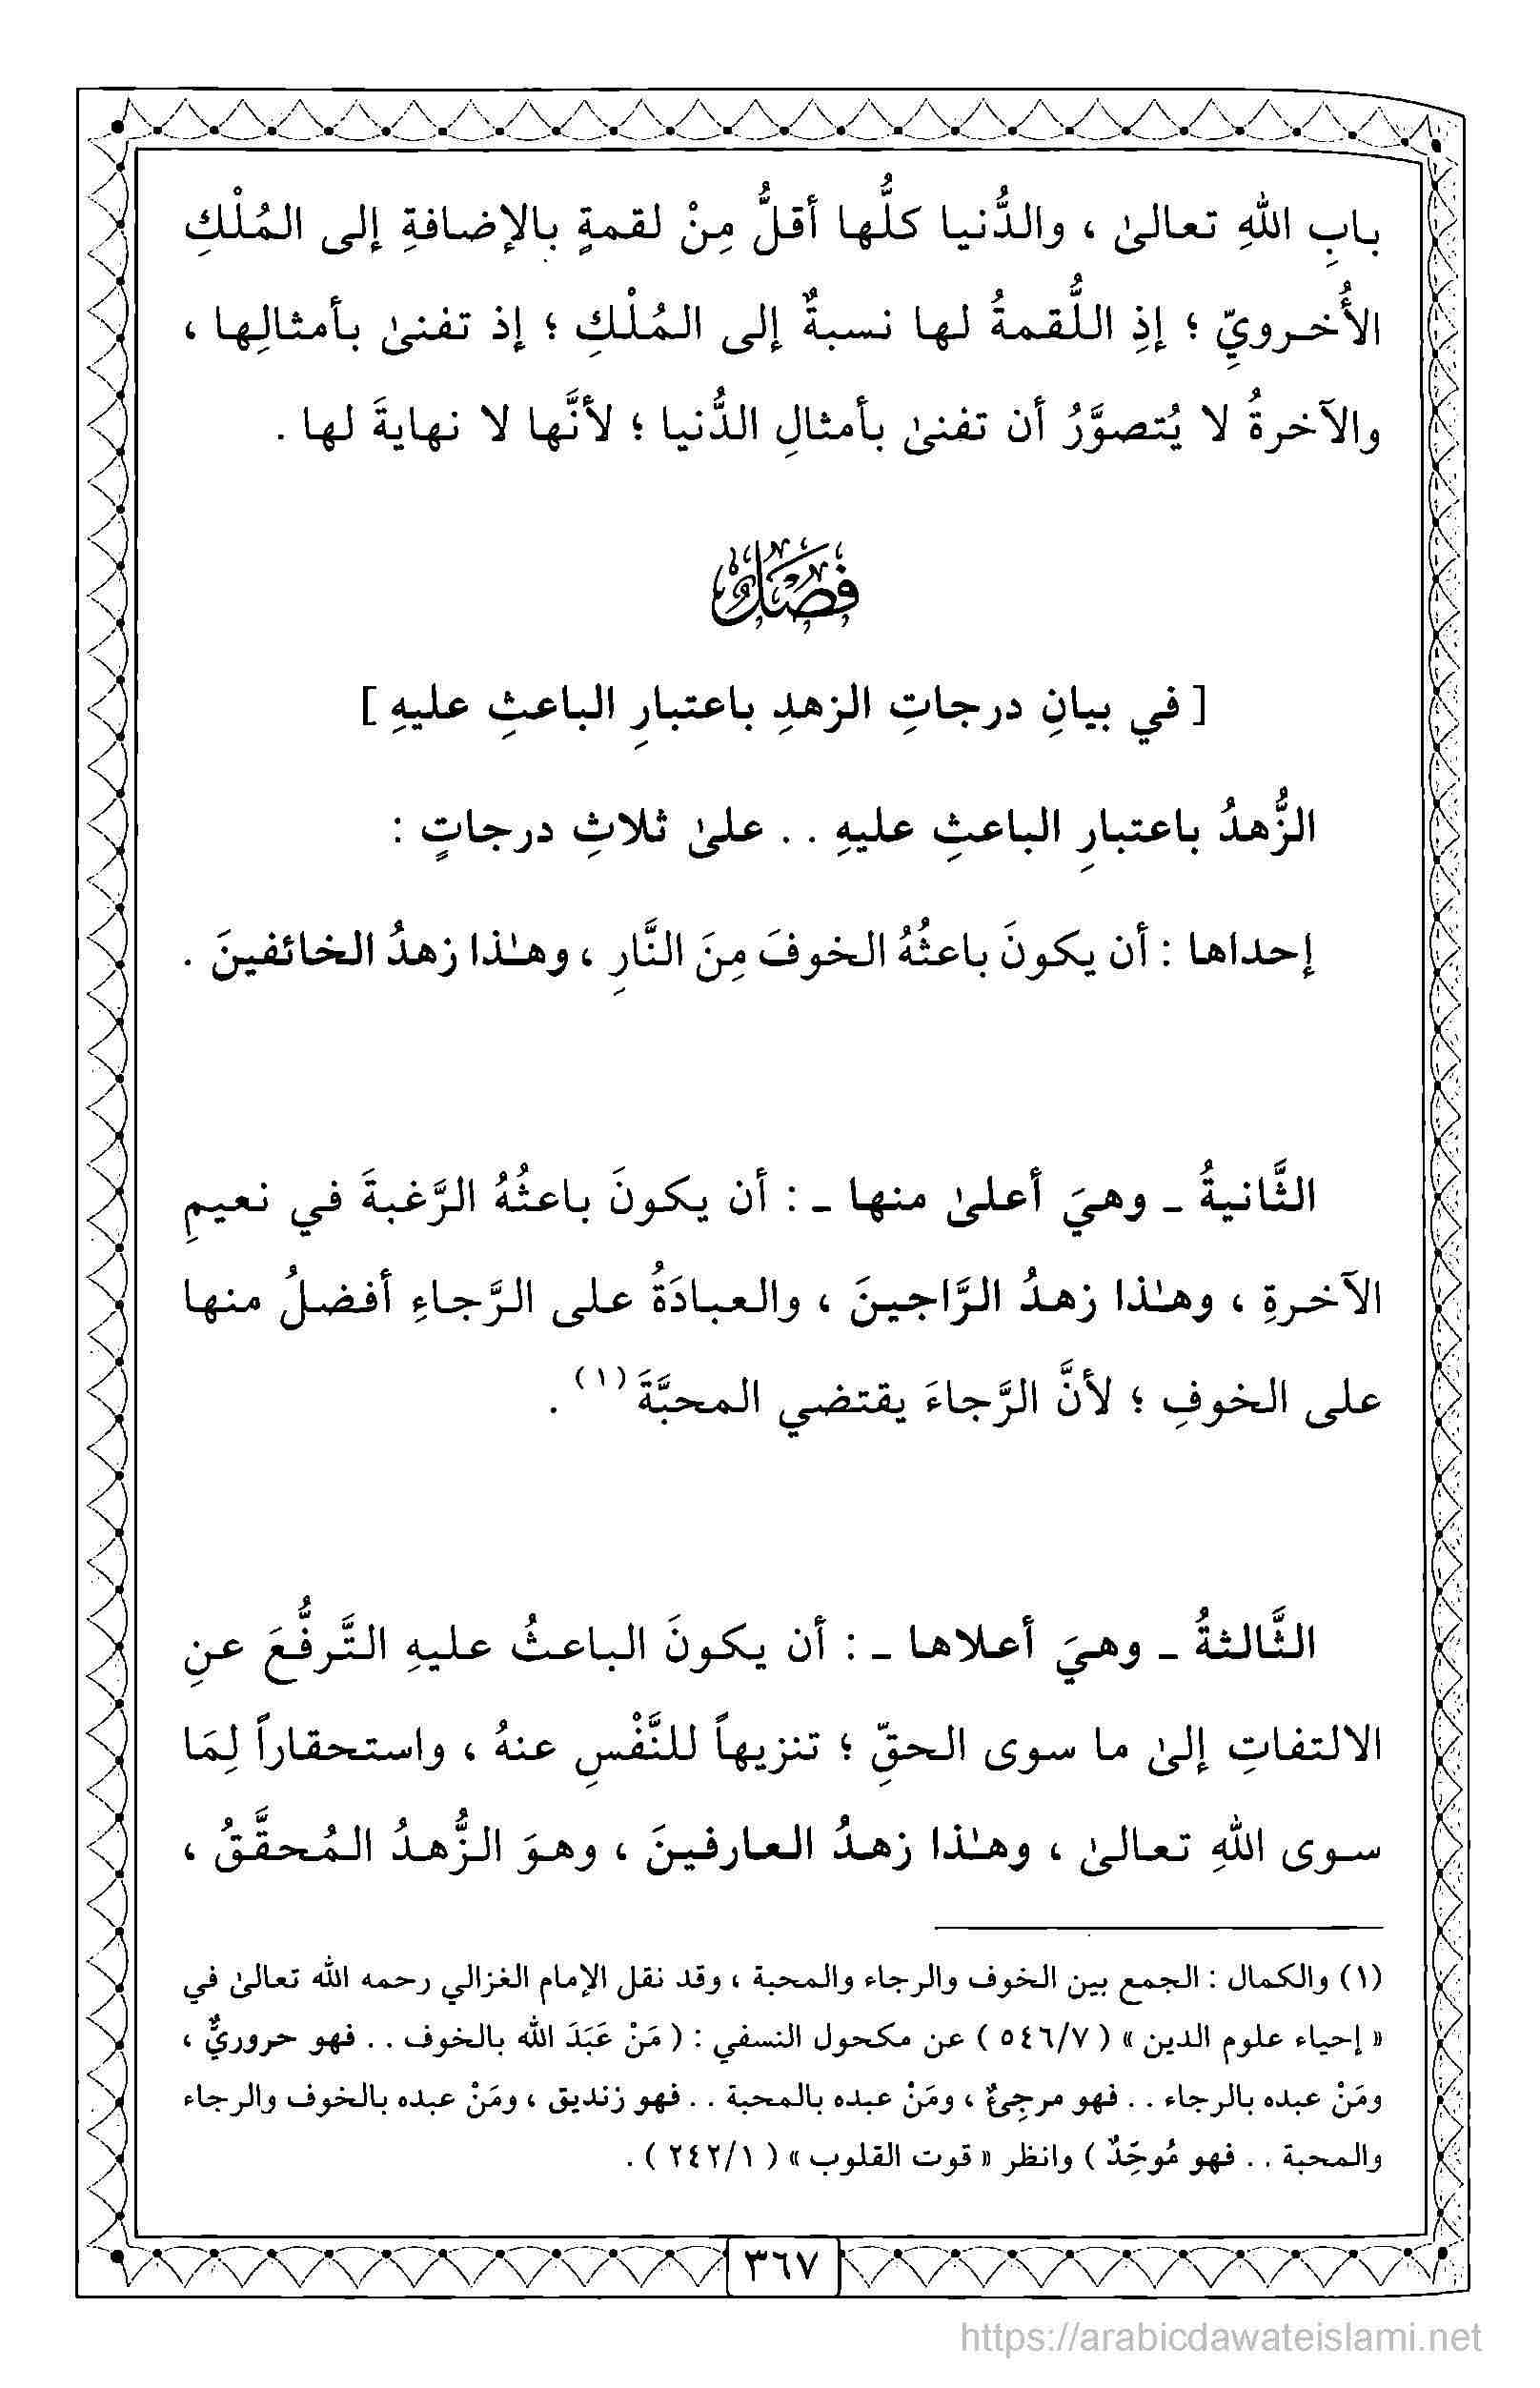 بابِ اللهِ تعالىٰ ، والدُّنيا كلُّها أقلُّ مِنْ لقمةٍ بالإضافةِ إلى المُلْكِ
الأُخرويِّ ؛ إذِ اللُّقمةُ لها نسبةٌ إلى المُلْكِ ؛ إذ تفنىٰ بأمثالِها ،
والآخرةُ لا يُتصوَّرُ أن تفنىٰ بأمثالِ الدُّنيا ؛ لأنَّها لا نهايةَ لها .
فَصْلٌ
[ في بيانِ درجاتِ الزهدِ باعتبارِ الباعثِ عليهِ ]
الزُّهدُ باعتبارِ الباعثِ عليهِ . . علىٰ ثلاثِ درجاتٍ :
إحداها : أن يكونَ باعثُهُ الخوفَ مِنَ النَّارِ ، وهـٰذا زهدُ الخائفينَ .
الثَّانيةُ ـ وهيَ أعلىٰ منها ـ : أن يكونَ باعثُهُ الرَّغبةَ في نعيمِ
الآخرةِ ، وهـٰذا زهدُ الرَّاجينَ ، والعبادَةُ على الرَّجاءِ أفضلُ منها
على الخوفِ ؛ لأنَّ الرَّجاءَ يقتضي المحبَّةَ (١) .
الثَّالثةُ ـ وهيَ أعلاها ـ : أن يكونَ الباعثُ عليهِ التَّرفُّعَ عنِ
الالتفاتِ إلىٰ ما سوى الحقِّ ؛ تنزيهاً للنَّفْسِ عنهُ ، واستحقاراً لِمَا
سوى اللهِ تعالىٰ ، وهـٰذا زهدُ العارفينَ ، وهوَ الزُّهدُ المُحقَّقُ ،
(١) والكمال : الجمع بين الخوف والرجاء والمحبة ، وقد نقل الإمام الغزالي رحمه الله تعالىٰ في
« إحياء علوم الدين » ( ٥٤٦/٧ ) عن مكحول النسفي : ( مَنْ عَبَدَ الله بالخوف . . فهو حروريٌّ ،
ومَنْ عبده بالرجاء . . فهو مرجِئٌ ، ومَنْ عبده بالمحبة . . فهو زنديق ، ومَنْ عبده بالخوف والرجاء
والمحبة . . فهو مُوحِّدٌ ) وانظر « قوت القلوب » ( ٢٤٢/١ ) .
٣٦٧
https://arabicdawateislami.net